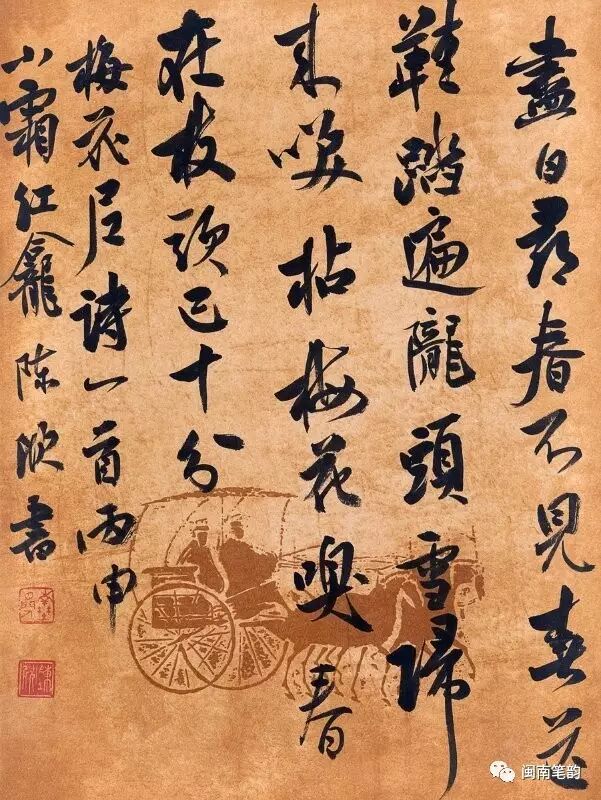 盡日尋春不見春芒
鞋踏遍隴頭雪歸
来咲拈梅花嗅春
在枝頭已十分
梅花尼詩一首丙申
小霜红龕陈書
闽南笔韵